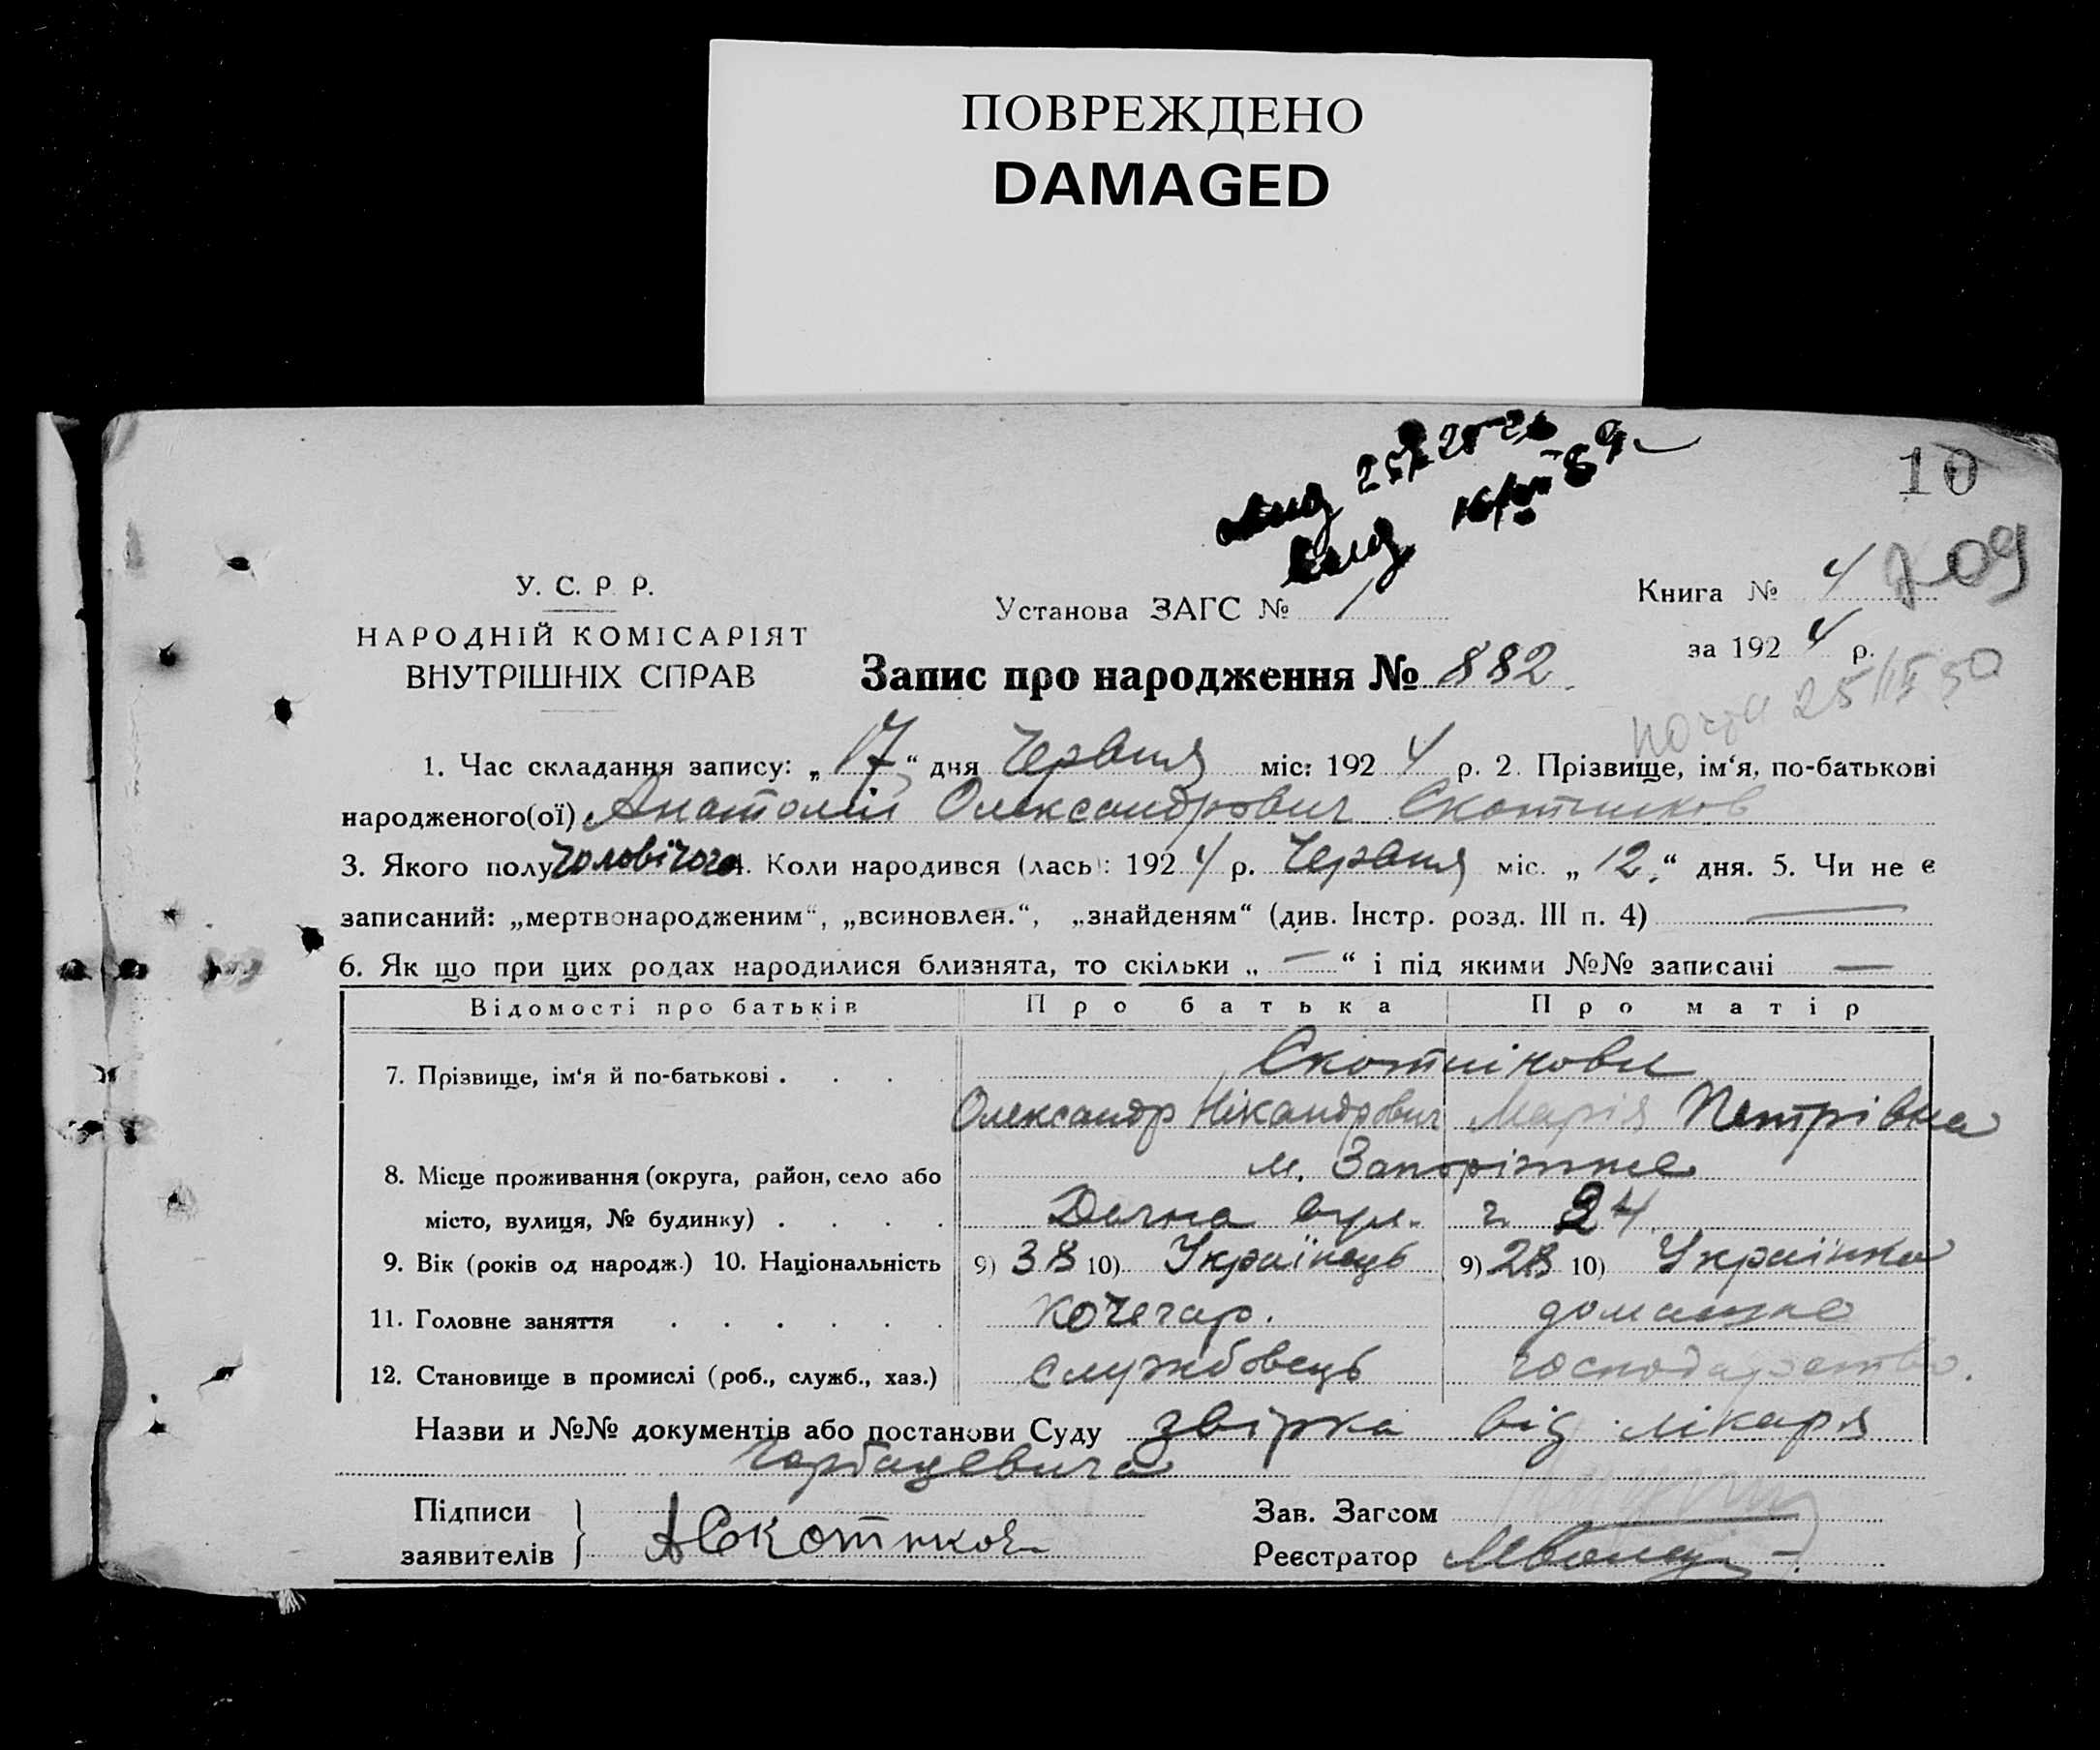 ПОВРЕЖДЕНО
DAMAGED
10
709
У. С. Р. Р.
НАРОДНІЙ КОМІСАРІЯТ
ВНУТРІШНІХ СПРАВ
Установа ЗАГС № 1
Книга № 4
за 1924 р.
Запис про народження № 882
1. Час складання запису: „17“ дня Червня міс: 1924 р. 2. Прізвище, ім‘я, по-батькові
народженого(ої) Анатолій Олександрович Скотників
3. Якого полу чоловічого 4. Коли народився (лась): 1924 р. Червня міс. „12“ дня. 5. Чи не є
записаний: „мертвонародженим“, „всиновлен.“, „знайденям“ (див. Інстр. розд. III п. 4) —
6. Як що при цих родах народилися близнята, то скільки „—“ і під якими №№ записані —
Відомості про батьків Про батька Про матір
7. Прізвище, ім‘я й по-батькові . . . . Скотнікови
Олександр Нікандрович Марія Петрівна
8. Місце проживання (округа, район, село або м. Запоріжжє
місто, вулиця, № будинку) . . . . Дачна вул. ч. 24
9. Вік (років од народж.) 10. Національність 9) 38 10) Українець 9) 28 10) Українка
11. Головне заняття . . . . . . кочегар. домашнє
12. Становище в промислі (роб., служб., хаз.) службовець господарство.
Назви и №№ документів або постанови Суду звірка від лікаря
Горбацевича
Підписи
заявителів } АСкотников
Зав. Загсом
Реєстратор